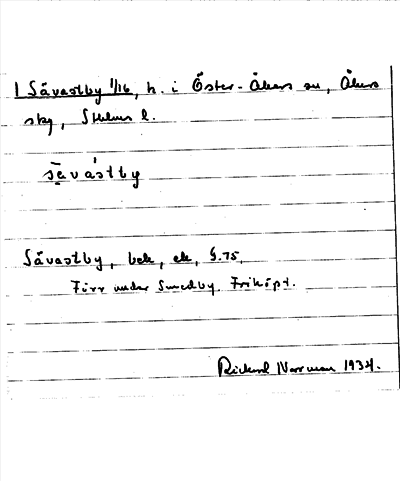 1 Sävastby 1/16, h. i Öster-Åkers sn, Åkers
skg, Sthlms l.
sǟvás̀tby
Sävastby, beb, ek, S.75,
Förr under Smedby. Friköpt.
Rickard Norrman 1934.